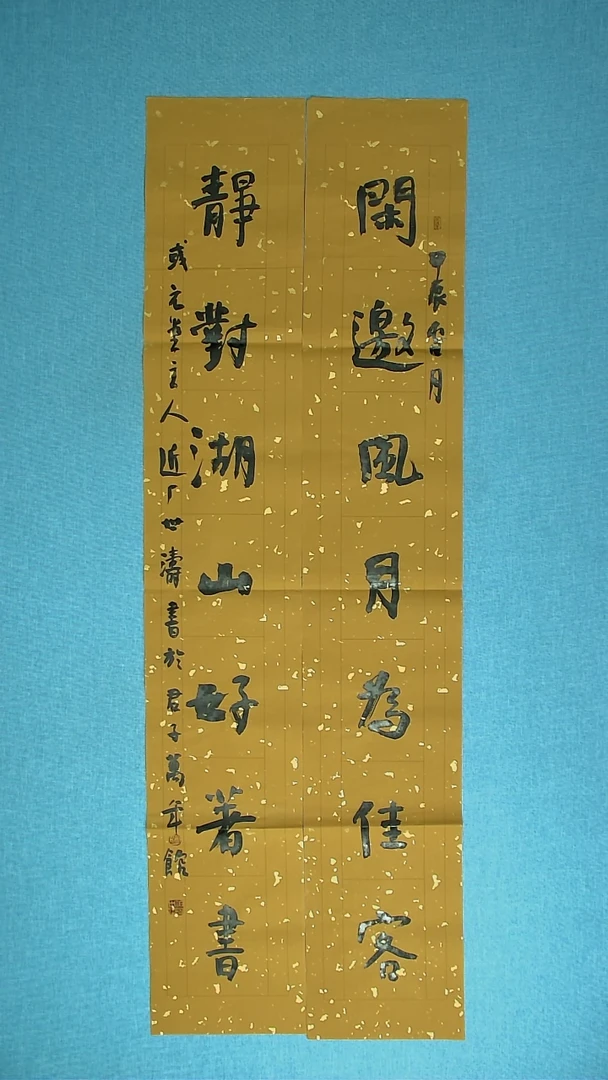 閑邀風月為佳客
甲辰雪月
靜對湖山好著書
或元堂主人近广世濤書於君子萬年館